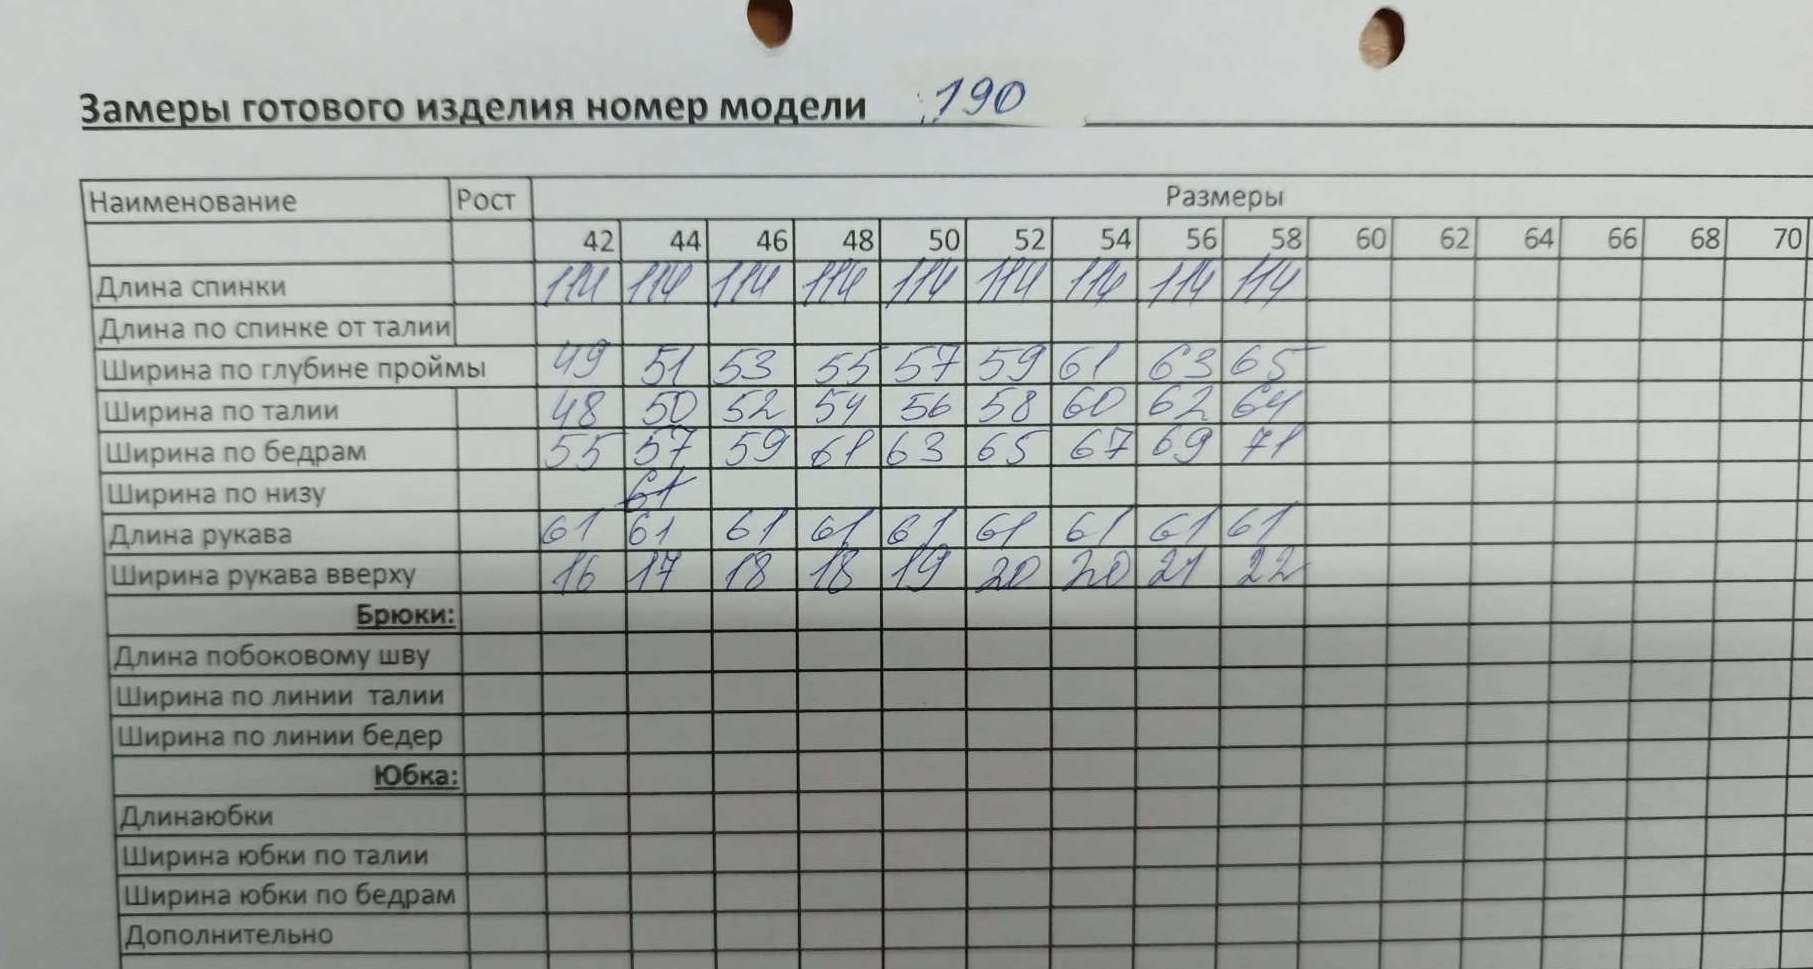 Замеры готового изделия номер модели 190
Наименование Рост Размеры
42 44 46 48 50 52 54 56 58 60 62 64 66 68 70
Длина спинки 114 114 114 114 114 114 114 114 114
Длина по спинке от талии
Ширина по глубине проймы 49 51 53 55 57 59 61 63 65
Ширина по талии 48 50 52 54 56 58 60 62 64
Ширина по бедрам 55 57 59 61 63 65 67 69 71
Ширина по низу 61
Длина рукава 61 61 61 61 61 61 61 61 61
Ширина рукава вверху 16 17 18 18 19 20 20 21 22
Брюки:
Длина побоковому шву
Ширина по линии талии
Ширина по линии бедер
Юбка:
Длинаюбки
Ширина юбки по талии
Ширина юбки по бедрам
Дополнительно